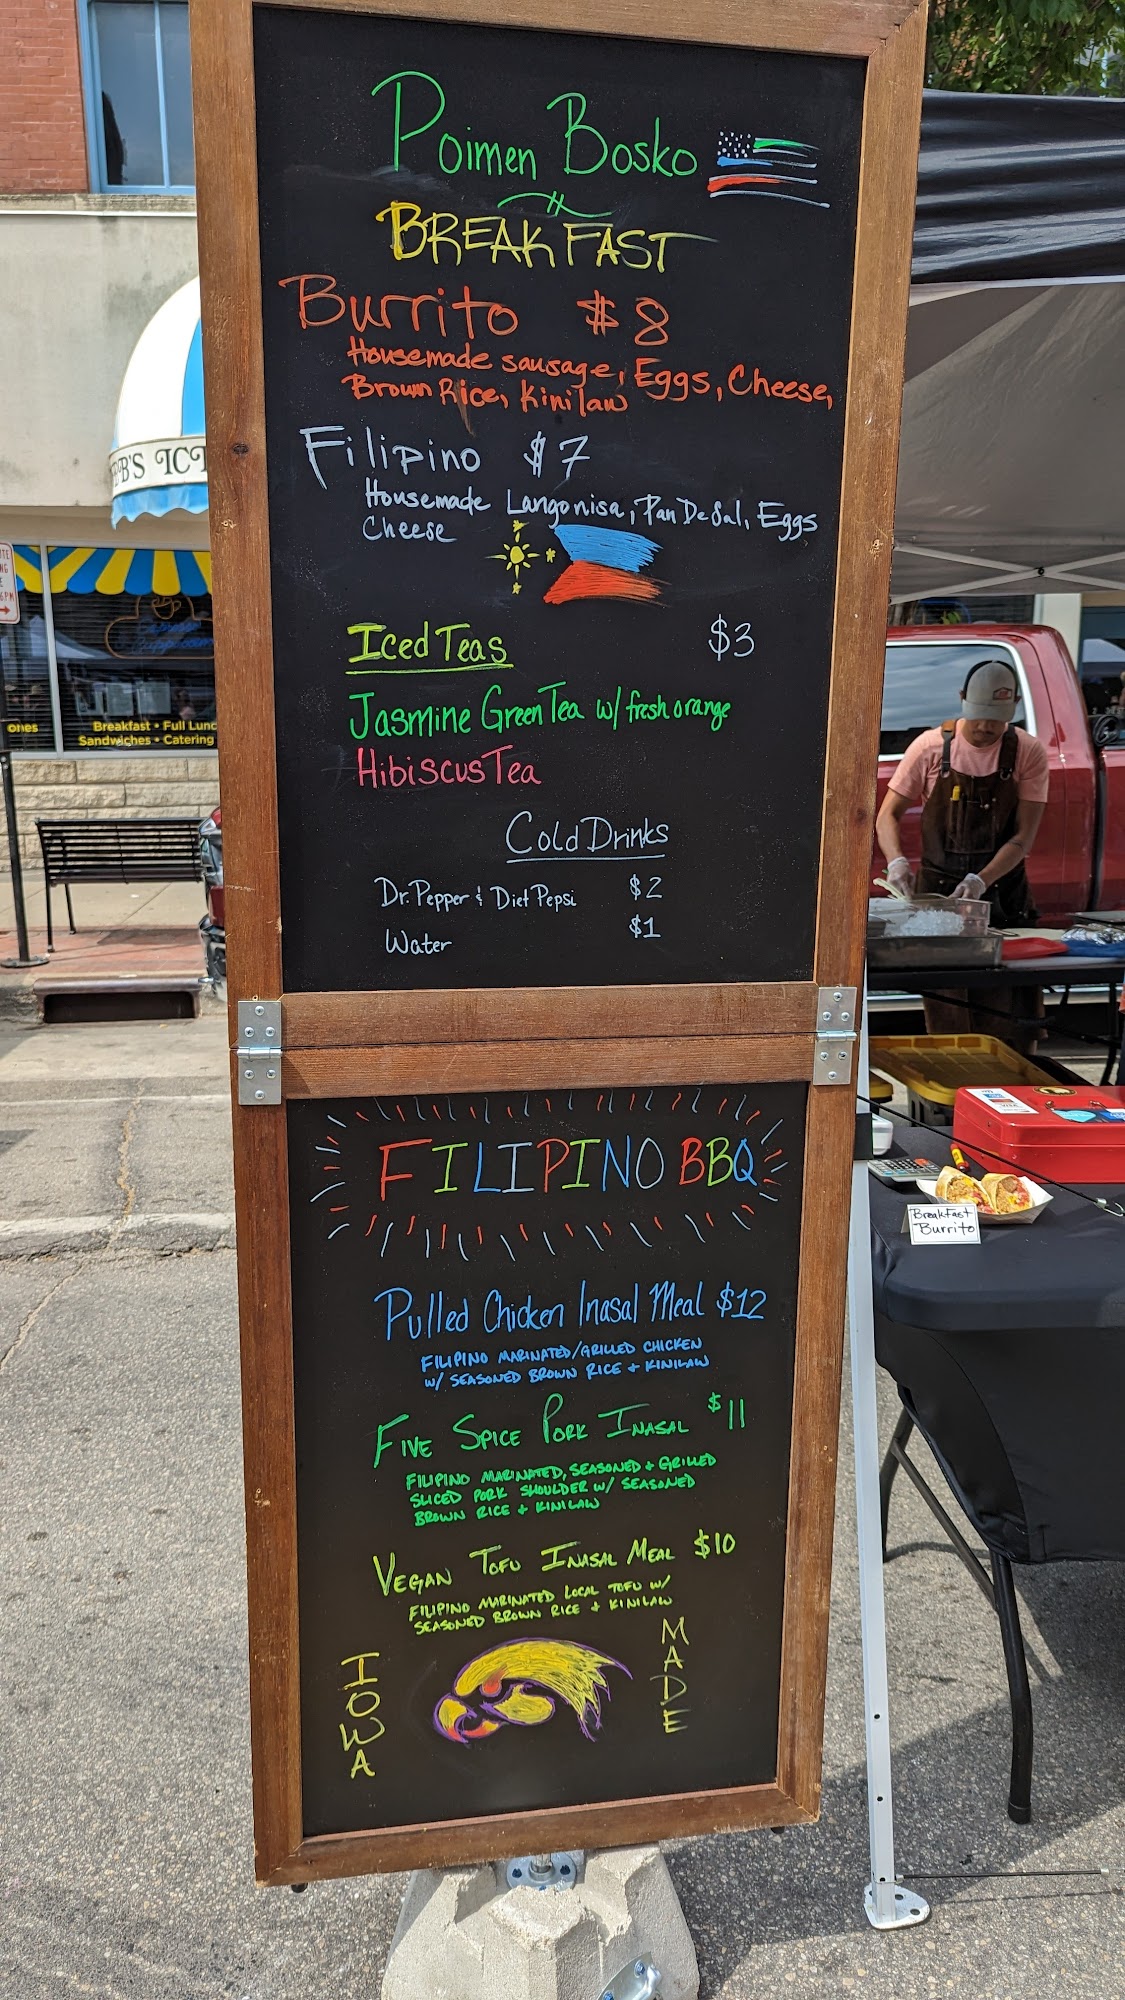 Poimen Bosko
BREAKFAST
Burrito $8
Housemade sausage, Eggs, Cheese,
Brown Rice, Kinilaw
Filipino $7
Housemade Langonisa, Pan De Sal, Eggs
Cheese
Iced Teas $3
Jasmine Green Tea w/ fresh orange
Hibiscus Tea
Cold Drinks
Dr. Pepper & Diet Pepsi $2
Water $1
FILIPINO BBQ
Pulled Chicken Inasal Meal $12
FILIPINO MARINATED/GRILLED CHICKEN
W/ SEASONED BROWN RICE + KINILAW
FIVE SPICE PORK INASAL $11
FILIPINO MARINATED, SEASONED + GRILLED
SLICED PORK SHOULDER W/ SEASONED
BROWN RICE + KINILAW
VEGAN TOFU INASAL MEAL $10
FILIPINO MARINATED LOCAL TOFU W/
SEASONED BROWN RICE + KINILAW
IOWA
MADE
B'S ICE
ones
Breakfast • Full Lunc
Sandwiches • Catering
Breakfast
Burrito